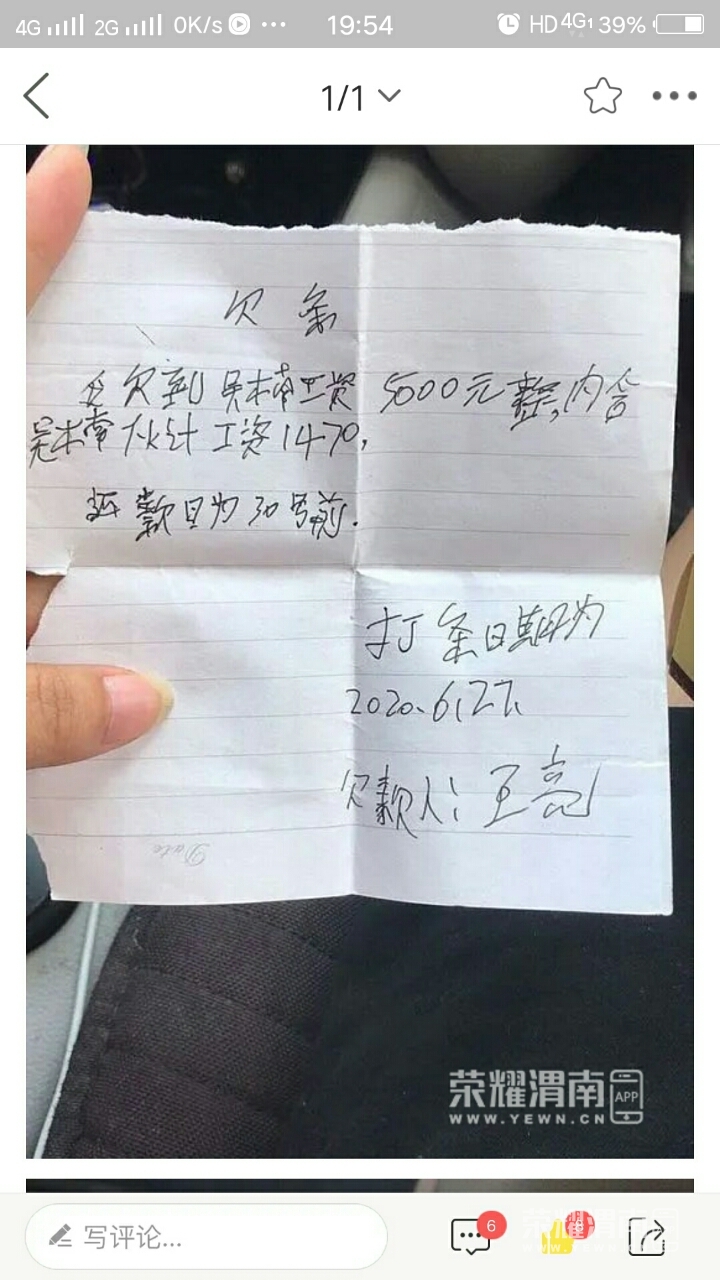 4G 2G 0K/s 19:54 HD 4G 39%
1/1
欠条
今欠到吴本常工资5000元整,内含
吴本常伙计工资1470,
还款日为30号前.
打条日期为
2020.6.27.
欠款人: 王亮
Date
荣耀渭南 APP
WWW.YEWN.CN
写评论... 6